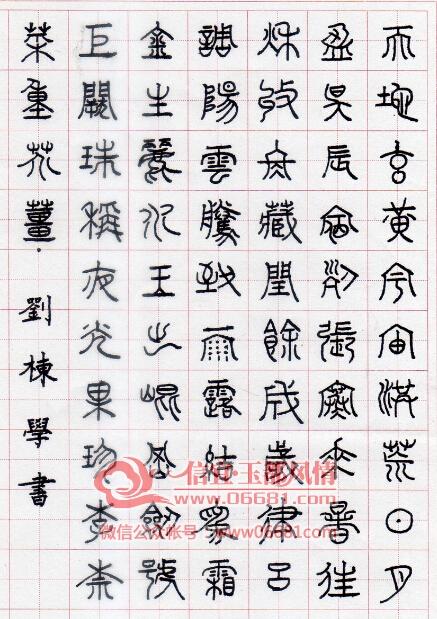 天地玄黃宇宙洪荒日月
盈昃辰宿列張寒來暑往
秋收冬藏閏餘成歲律呂
調陽雲騰致雨露結為霜
金生麗水玉出崑岡劍號
巨闕珠稱夜光果珍李柰
菜重芥薑·劉棟學書
信宜·玉都风情
www.06681.com
微信公众帐号：www06681com